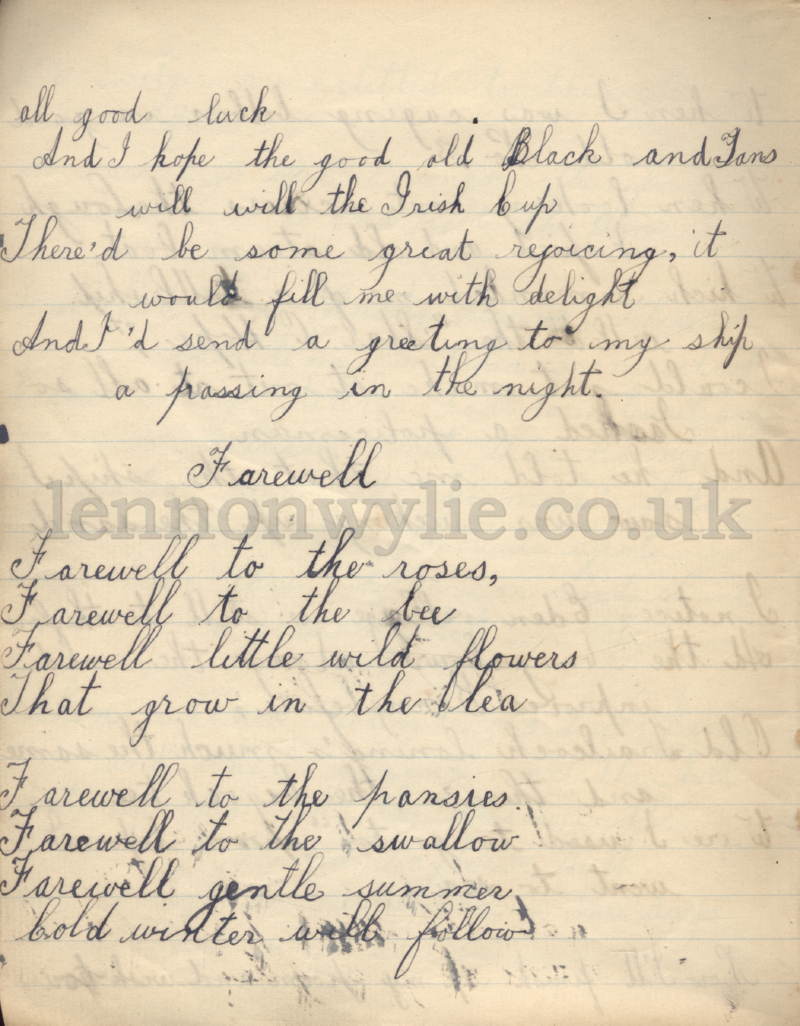 all good luck
And I hope the good old Black and Tans
will will the Irish Cup
There'd be some great rejoicing, it
would fill me with delight
And I'd send a greeting to my ship
a passing in the night.
Farewell
lennonwylie.co.uk
Farewell to the roses,
Farewell to the bee
Farewell little wild flowers
That grow in the lea
Farewell to the pansies
Farewell to the swallow
Farewell gentle summer
Cold winter will follow